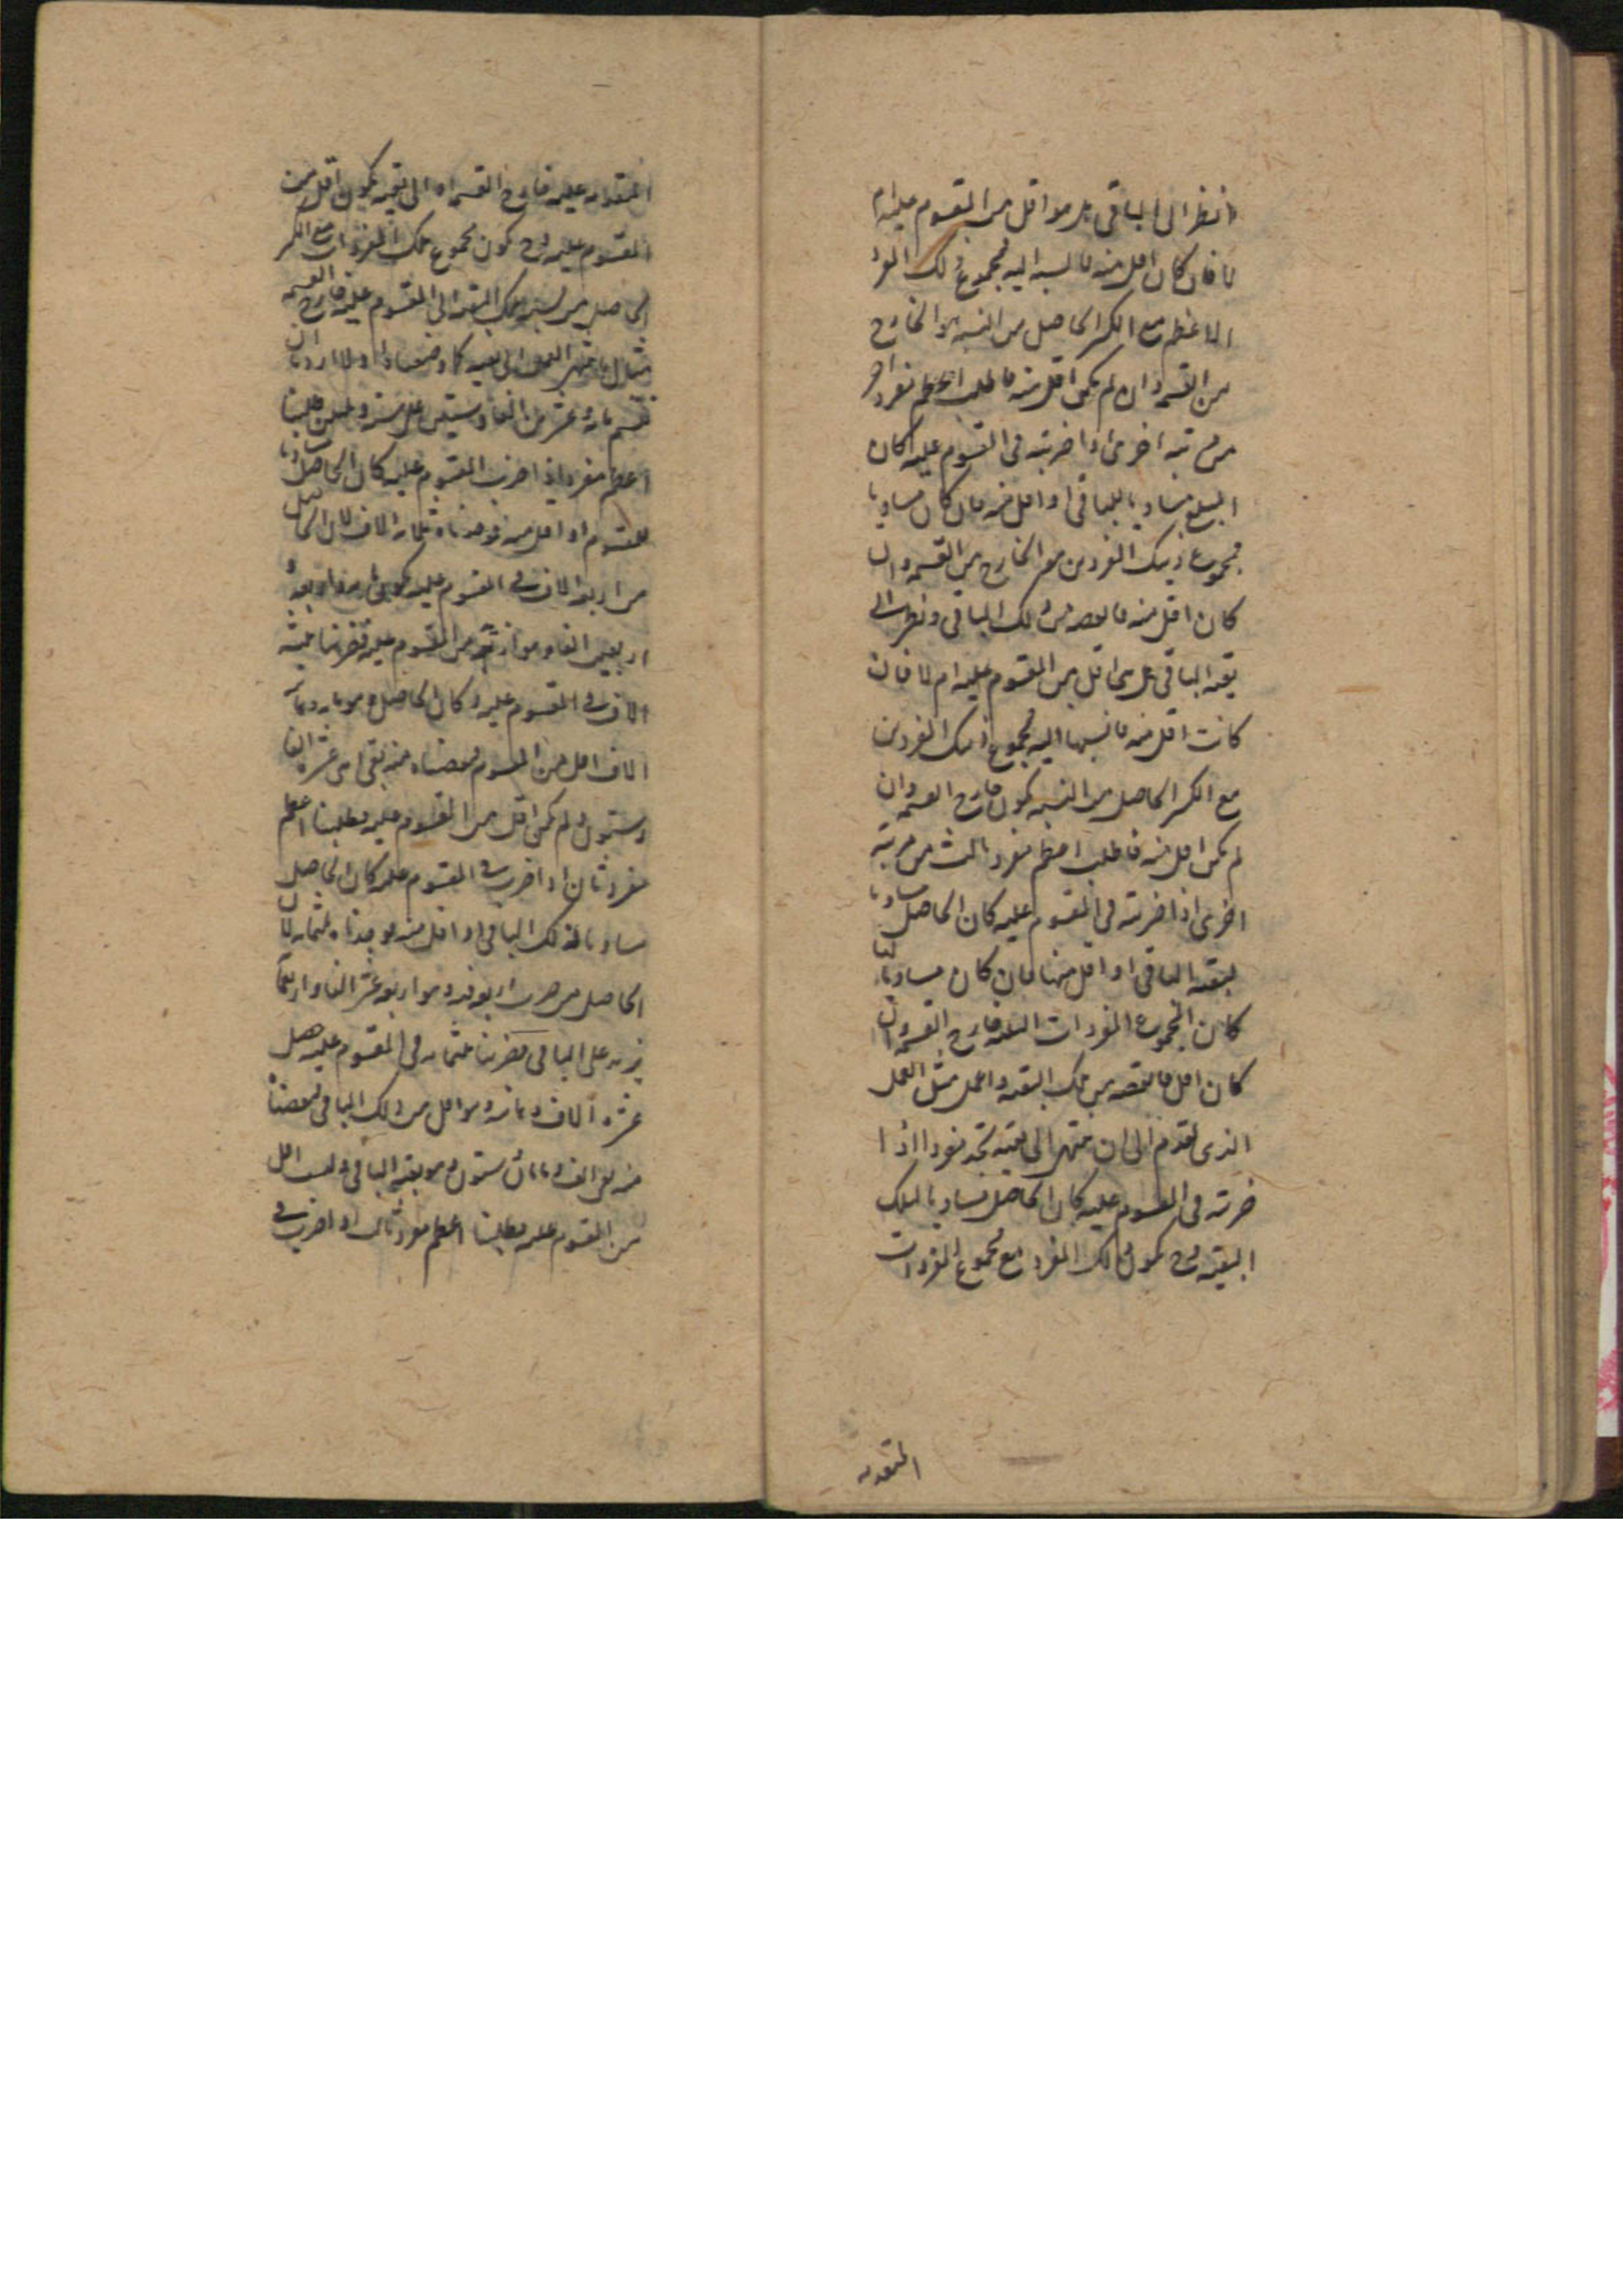 انظر الى الباقى هل هو اقل من المقسوم عليه ام
لا فان كان اقل منه فانسبه اليه فمجموع ذلك المفرد
الاعظم مع الكسر الحاصل من النسبه هو الخارج
من القسمه وان لم يكن اقل منه فاطلب اعظم مفرد اخر
من مرتبه اخرى اذا ضربته فى المقسوم عليه كان
المبلغ مساويا للباقى او اقل منه فان كان مساويا
فمجموع ذينك المفردين هو الخارج من القسمه وان
كان اقل منه فانقصه من ذلك الباقى ونظرت الى
بقيه الباقى هل هى اقل من المقسوم عليه ام لا فان
كانت اقل منه فانسبها اليه فمجموع ذينك المفردين
مع الكسر الحاصل من النسبه يكون خارج القسمه وان
لم يكن اقل منه فاطلب اعظم مفرد ثالث من مرتبة
اخرى اذا ضربته فى المقسوم عليه كان الحاصل مساويا
لبقيه الباقى او اقل منها فان كان مساويا لها
كان مجموع المفردات الثلثه خارج القسمه وان
كان اقل فانقصه من تلك البقيه واعمل مثل العمل
الذى تقدم الى ان ينتهى الى بقيه تجد مفردا اذا
ضربته فى المقسوم عليه كان الحاصل مساويا لتلك
البقيه فح يكون ذلك المفرد مع مجموع المفردات
المتقدمه
المتقدمه عليه خارج القسمه او الى بقيه يكون اقل من
المقسوم عليه فح يكون مجموع تلك المفردات مع الكسر
الحاصل من نسبة تلك البقيه الى المقسوم عليه خارج القسمه
مثال ما ينتهى العمل الى بقيه كما وصفنا اولا اردنا ان
نقسم مائة وعشرين الفا وستين على ستة وثلثين طلبنا
اعظم مفرد اذا ضرب المقسوم عليه كان الحاصل مساويا
للمقسوم او اقل منه فوجدناه ثلثه الاف لان الحاصل
من اربعه الاف فى المقسوم عليه يكون مائه واربعة
اربعين الفا وهو ازيد من المقسوم عليه فضربنا ثلثة
الاف فى المقسوم عليه وكان الحاصل وهو مايه وثمانيه
الاف اقل من المقسوم نقصناه منه بقى اثنى عشر الفا
وستون ولم يكن اقل من المقسوم عليه فطلبنا اعظم
مفرد ثان اذا ضرب فى المقسوم عليه كان الحاصل
مساويا لذلك الباقى او اقل منه فوجدناه ثلثمايه لان
الحاصل من ضرب اربعمائه وهو اربعة عشر الفا واربعمائة
يزيد على الباقى فضربنا ثلثمايه فى المقسوم عليه حصل
عشرة الاف وثمانمائه وهو اقل من ذلك الباقى نقصناه
منه بقى الف ومائتان وستون وهو بقيه الباقى وليست اقل
من المقسوم عليه فطلبنا اعظم مفرد ثالث اذا ضرب فى